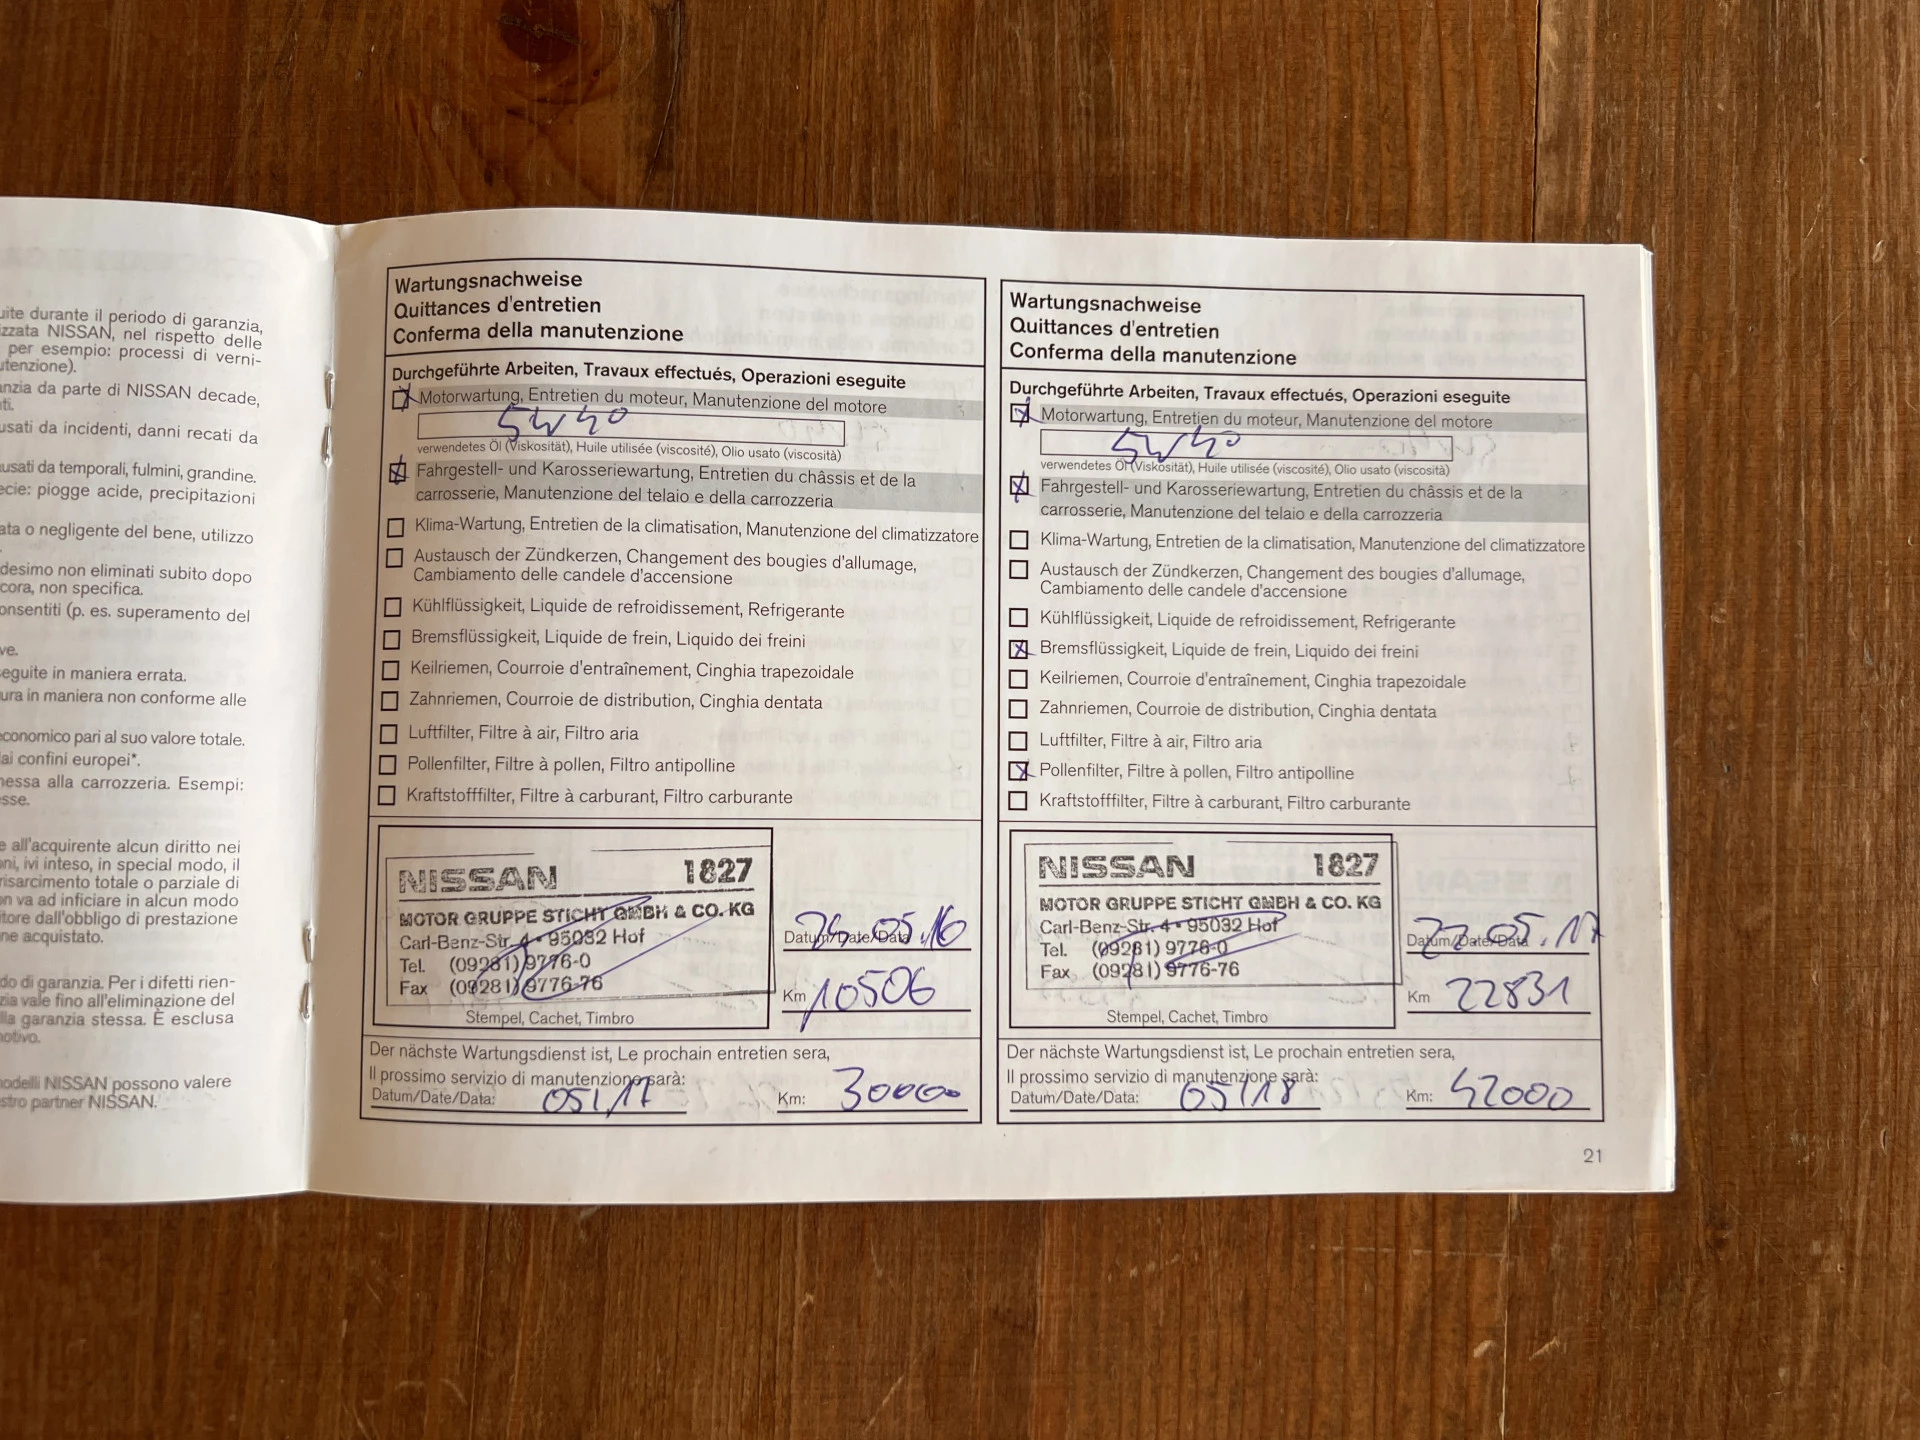 uite durante il periodo di garanzia,
zzata NISSAN, nel rispetto delle
per esempio: processi di verni-
utenzione).
anzia da parte di NISSAN decade,
ti.
usati da incidenti, danni recati da
usati da temporali, fulmini, grandine.
ecie: piogge acide, precipitazioni
ata o negligente del bene, utilizzo
desimo non eliminati subito dopo
cora, non specifica.
onsentiti (p. es. superamento del
ve.
seguite in maniera errata.
ura in maniera non conforme alle
economico pari al suo valore totale.
ai confini europei*.
nessa alla carrozzeria. Esempi:
sse.
e all'acquirente alcun diritto nei
oni, ivi inteso, in special modo, il
risarcimento totale o parziale di
on va ad inficiare in alcun modo
itore dall'obbligo di prestazione
ne acquistato.
do di garanzia. Per i difetti rien-
zia vale fino all'eliminazione del
lla garanzia stessa. È esclusa
notivo.
nodelli NISSAN possono valere
stro partner NISSAN.
Wartungsnachweise
Quittances d'entretien
Conferma della manutenzione
Durchgeführte Arbeiten, Travaux effectués, Operazioni eseguite
Motorwartung, Entretien du moteur, Manutenzione del motore
5W40
verwendetes Öl (Viskosität), Huile utilisée (viscosité), Olio usato (viscosità)
Fahrgestell- und Karosseriewartung, Entretien du châssis et de la
carrosserie, Manutenzione del telaio e della carrozzeria
Klima-Wartung, Entretien de la climatisation, Manutenzione del climatizzatore
Austausch der Zündkerzen, Changement des bougies d'allumage,
Cambiamento delle candele d'accensione
Kühlflüssigkeit, Liquide de refroidissement, Refrigerante
Bremsflüssigkeit, Liquide de frein, Liquido dei freini
Keilriemen, Courroie d'entraînement, Cinghia trapezoidale
Zahnriemen, Courroie de distribution, Cinghia dentata
Luftfilter, Filtre à air, Filtro aria
Pollenfilter, Filtre à pollen, Filtro antipolline
Kraftstofffilter, Filtre à carburant, Filtro carburante
NISSAN 1827
MOTOR GRUPPE STICHT GMBH & CO. KG
Carl-Benz-Str. 4 • 95032 Hof
Tel. (09281) 9776-0
Fax (09281) 9776-76
Stempel, Cachet, Timbro
Datum/Date/Data .05.16
Km 10506
Der nächste Wartungsdienst ist, Le prochain entretien sera,
Il prossimo servizio di manutenzione sarà:
Datum/Date/Data: 05/17 Km: 30000
Wartungsnachweise
Quittances d'entretien
Conferma della manutenzione
Durchgeführte Arbeiten, Travaux effectués, Operazioni eseguite
Motorwartung, Entretien du moteur, Manutenzione del motore
5W40
verwendetes Öl (Viskosität), Huile utilisée (viscosité), Olio usato (viscosità)
Fahrgestell- und Karosseriewartung, Entretien du châssis et de la
carrosserie, Manutenzione del telaio e della carrozzeria
Klima-Wartung, Entretien de la climatisation, Manutenzione del climatizzatore
Austausch der Zündkerzen, Changement des bougies d'allumage,
Cambiamento delle candele d'accensione
Kühlflüssigkeit, Liquide de refroidissement, Refrigerante
Bremsflüssigkeit, Liquide de frein, Liquido dei freini
Keilriemen, Courroie d'entraînement, Cinghia trapezoidale
Zahnriemen, Courroie de distribution, Cinghia dentata
Luftfilter, Filtre à air, Filtro aria
Pollenfilter, Filtre à pollen, Filtro antipolline
Kraftstofffilter, Filtre à carburant, Filtro carburante
NISSAN 1827
MOTOR GRUPPE STICHT GMBH & CO. KG
Carl-Benz-Str. 4 • 95032 Hof
Tel. (09281) 9776-0
Fax (09281) 9776-76
Stempel, Cachet, Timbro
Datum/Date/Data 22.05.17
Km 22831
Der nächste Wartungsdienst ist, Le prochain entretien sera,
Il prossimo servizio di manutenzione sarà:
Datum/Date/Data: 05/18 Km: 42000
21